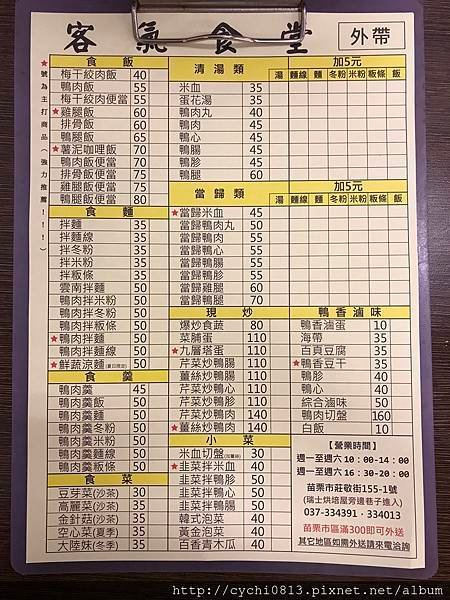 客氣食堂
外帶
★號為主打商品(強力推薦!!!)
食飯
梅干絞肉飯 40
鴨肉飯 55
梅干絞肉便當 55
★雞腿飯 60
排骨飯 60
鴨腿飯 65
★薯泥咖哩飯 70
鴨肉飯便當 70
排骨飯便當 75
雞腿飯便當 75
鴨腿飯便當 80
食麵
拌麵 35
拌麵線 35
拌冬粉 35
拌米粉 35
拌粄條 35
雲南拌麵 50
鴨肉拌米粉 50
鴨肉拌冬粉 50
鴨肉拌粄條 50
★鴨肉拌麵 50
鴨肉拌麵線 50
★鮮蔬涼麵 50
食羹
鴨肉羹 45
鴨肉羹飯 50
鴨肉羹麵 50
鴨肉羹冬粉 50
鴨肉羹米粉 50
鴨肉羹麵線 50
鴨肉羹粄條 50
食菜
豆芽菜(沙茶) 30
高麗菜(沙茶) 35
金針菇(沙茶) 35
空心菜(夏季) 35
大陸妹(冬季) 35
清湯類
加5元
湯 麵線 麵 冬粉 米粉 粄條 飯
米血 35
蛋花湯 35
鴨肉丸 40
鴨肉 45
鴨心 45
鴨腸 45
鴨胗 45
鴨腿 60
當歸類
加5元
湯 麵線 麵 冬粉 米粉 粄條 飯
★當歸米血 45
當歸鴨肉丸 50
當歸鴨肉 55
當歸鴨心 55
當歸鴨腸 55
當歸鴨胗 55
當歸雞腿 60
當歸鴨腿 70
現炒
爆炒食蔬 80
菜脯蛋 110
★九層塔蛋 110
芹菜炒鴨腸 110
薑絲炒鴨腸 110
芹菜炒鴨胗 110
芹菜炒鴨肉 140
★薑絲炒鴨肉 140
小菜
米血切盤 30
★韭菜拌米血 40
韭菜拌鴨胗 50
韭菜拌鴨心 50
韭菜拌鴨腸 50
韓式泡菜 40
黃金泡菜 40
百香青木瓜 40
鴨香滷味
鴨香滷蛋 10
海帶 35
百頁豆腐 35
★鴨香豆干 35
鴨胗 40
鴨心 40
綜合滷味 50
鴨肉切盤 160
白飯 10
【營業時間】
週一至週六10:00-14:00
週一至週六16:30-20:00
苗栗市莊敬街155-1號
(瑞士烘培屋旁邊巷子進入)
037-334391．334013
苗栗市區滿300即可外送
其它地區如需外送請來電洽詢
http://cychi0813.pixnet.net/album